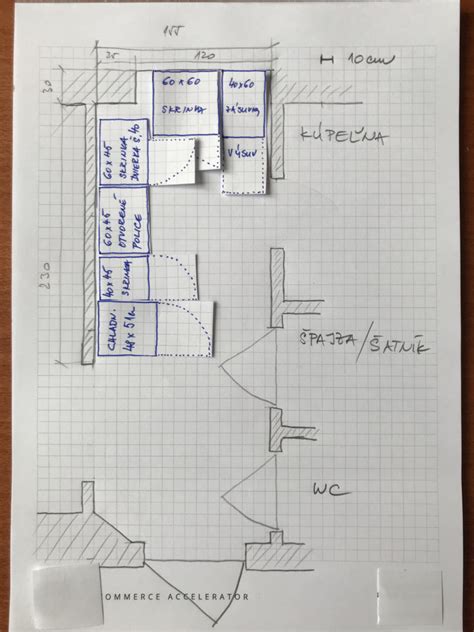 155
35 120
H 10cm
30
60x60
SKRINKA
40x60
ZÁSUVKY
VÝSUV
KÚPEĽŇA
60x45
SKRINKA
DVIERKA Š.40
60x45
OTVORENÉ
POLICE
230
40x45
SKRINKA
CHLADN.
48x51a
ŠPAJZA/
ŠATNÍK
WC
OMMERCE ACCELERATOR